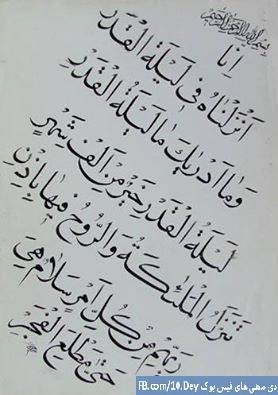 بسم الله الرحمن الرحیم
انا
انزلناه فی لیلة القدر
وما ادریك ما لیلة القدر
لیلة القدر خیر من الف شهر
تنزل الملئكة والروح فیها باذن
ربهم من كل امر سلام هی
حتی مطلع الفجر
FB.com/10.Dey دی مهی های فیس بوک